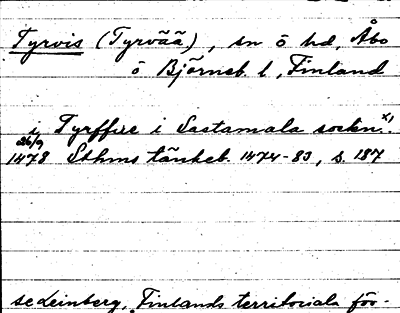 Tyrvis (Tyrvää), sn ö hd, Åbo
o Björneb. l, Finland
i Tyrffve i Sastamala sockn.x)
26/9
1478 Sthms tänkeb. 1474-83, s. 187
se Leinberg, Finlands territoriala för-